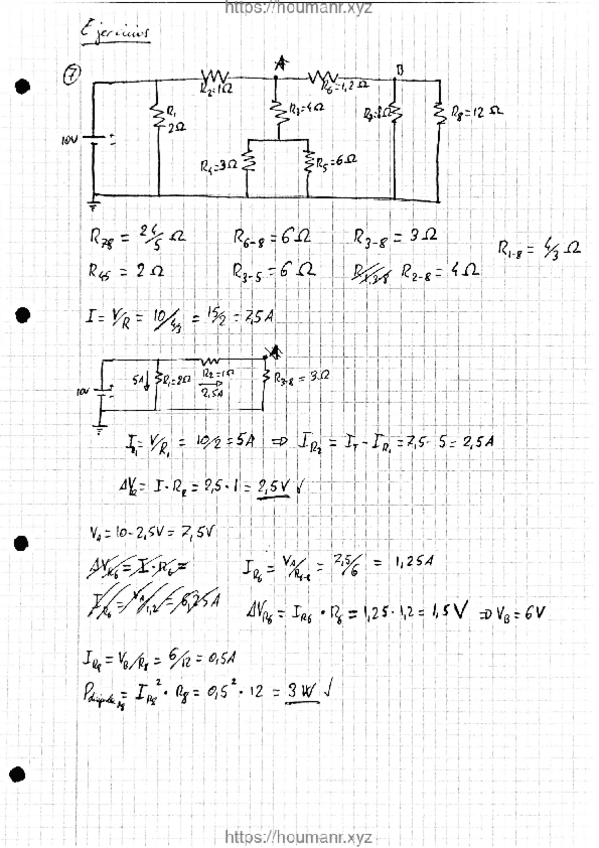 https://houmanr.xyz
Ejercicios
7
A
B
R2=1Ω
R6=1,2Ω
R1
2Ω
R3=4Ω
R8=12Ω
10V
R4=3Ω
R5=6Ω
R78 = 24/5 Ω
R6-8 = 6Ω
R3-8 = 3Ω
R1-8 = 4/3 Ω
R45 = 2Ω
R3-5 = 6Ω
R2-8 = 4Ω
I = V/R = 10/4/3 = 15/2 = 7,5A
A
10V
5A
R1=2Ω
R2=1Ω
2,5A
R3-8 = 3Ω
IR1 = V/R1 = 10/2 = 5A ⇒ IR2 = IT - IR1 = 7,5 - 5 = 2,5A
ΔVR2 = I·R2 = 2,5·1 = 2,5V ✓
VA = 10-2,5V = 7,5V
ΔVR6 = I·R6 =
IR6 = VA/R6-8 = 7,5/6 = 1,25A
IR6 = VA/1,2 = 6,25A
ΔVR6 = IR6 · R6 = 1,25·1,2 = 1,5V ⇒ VB = 6V
IR8 = VB/R8 = 6/12 = 0,5A
IR8² · R8 = 0,5² · 12 = 3W ✓
https://houmanr.xyz